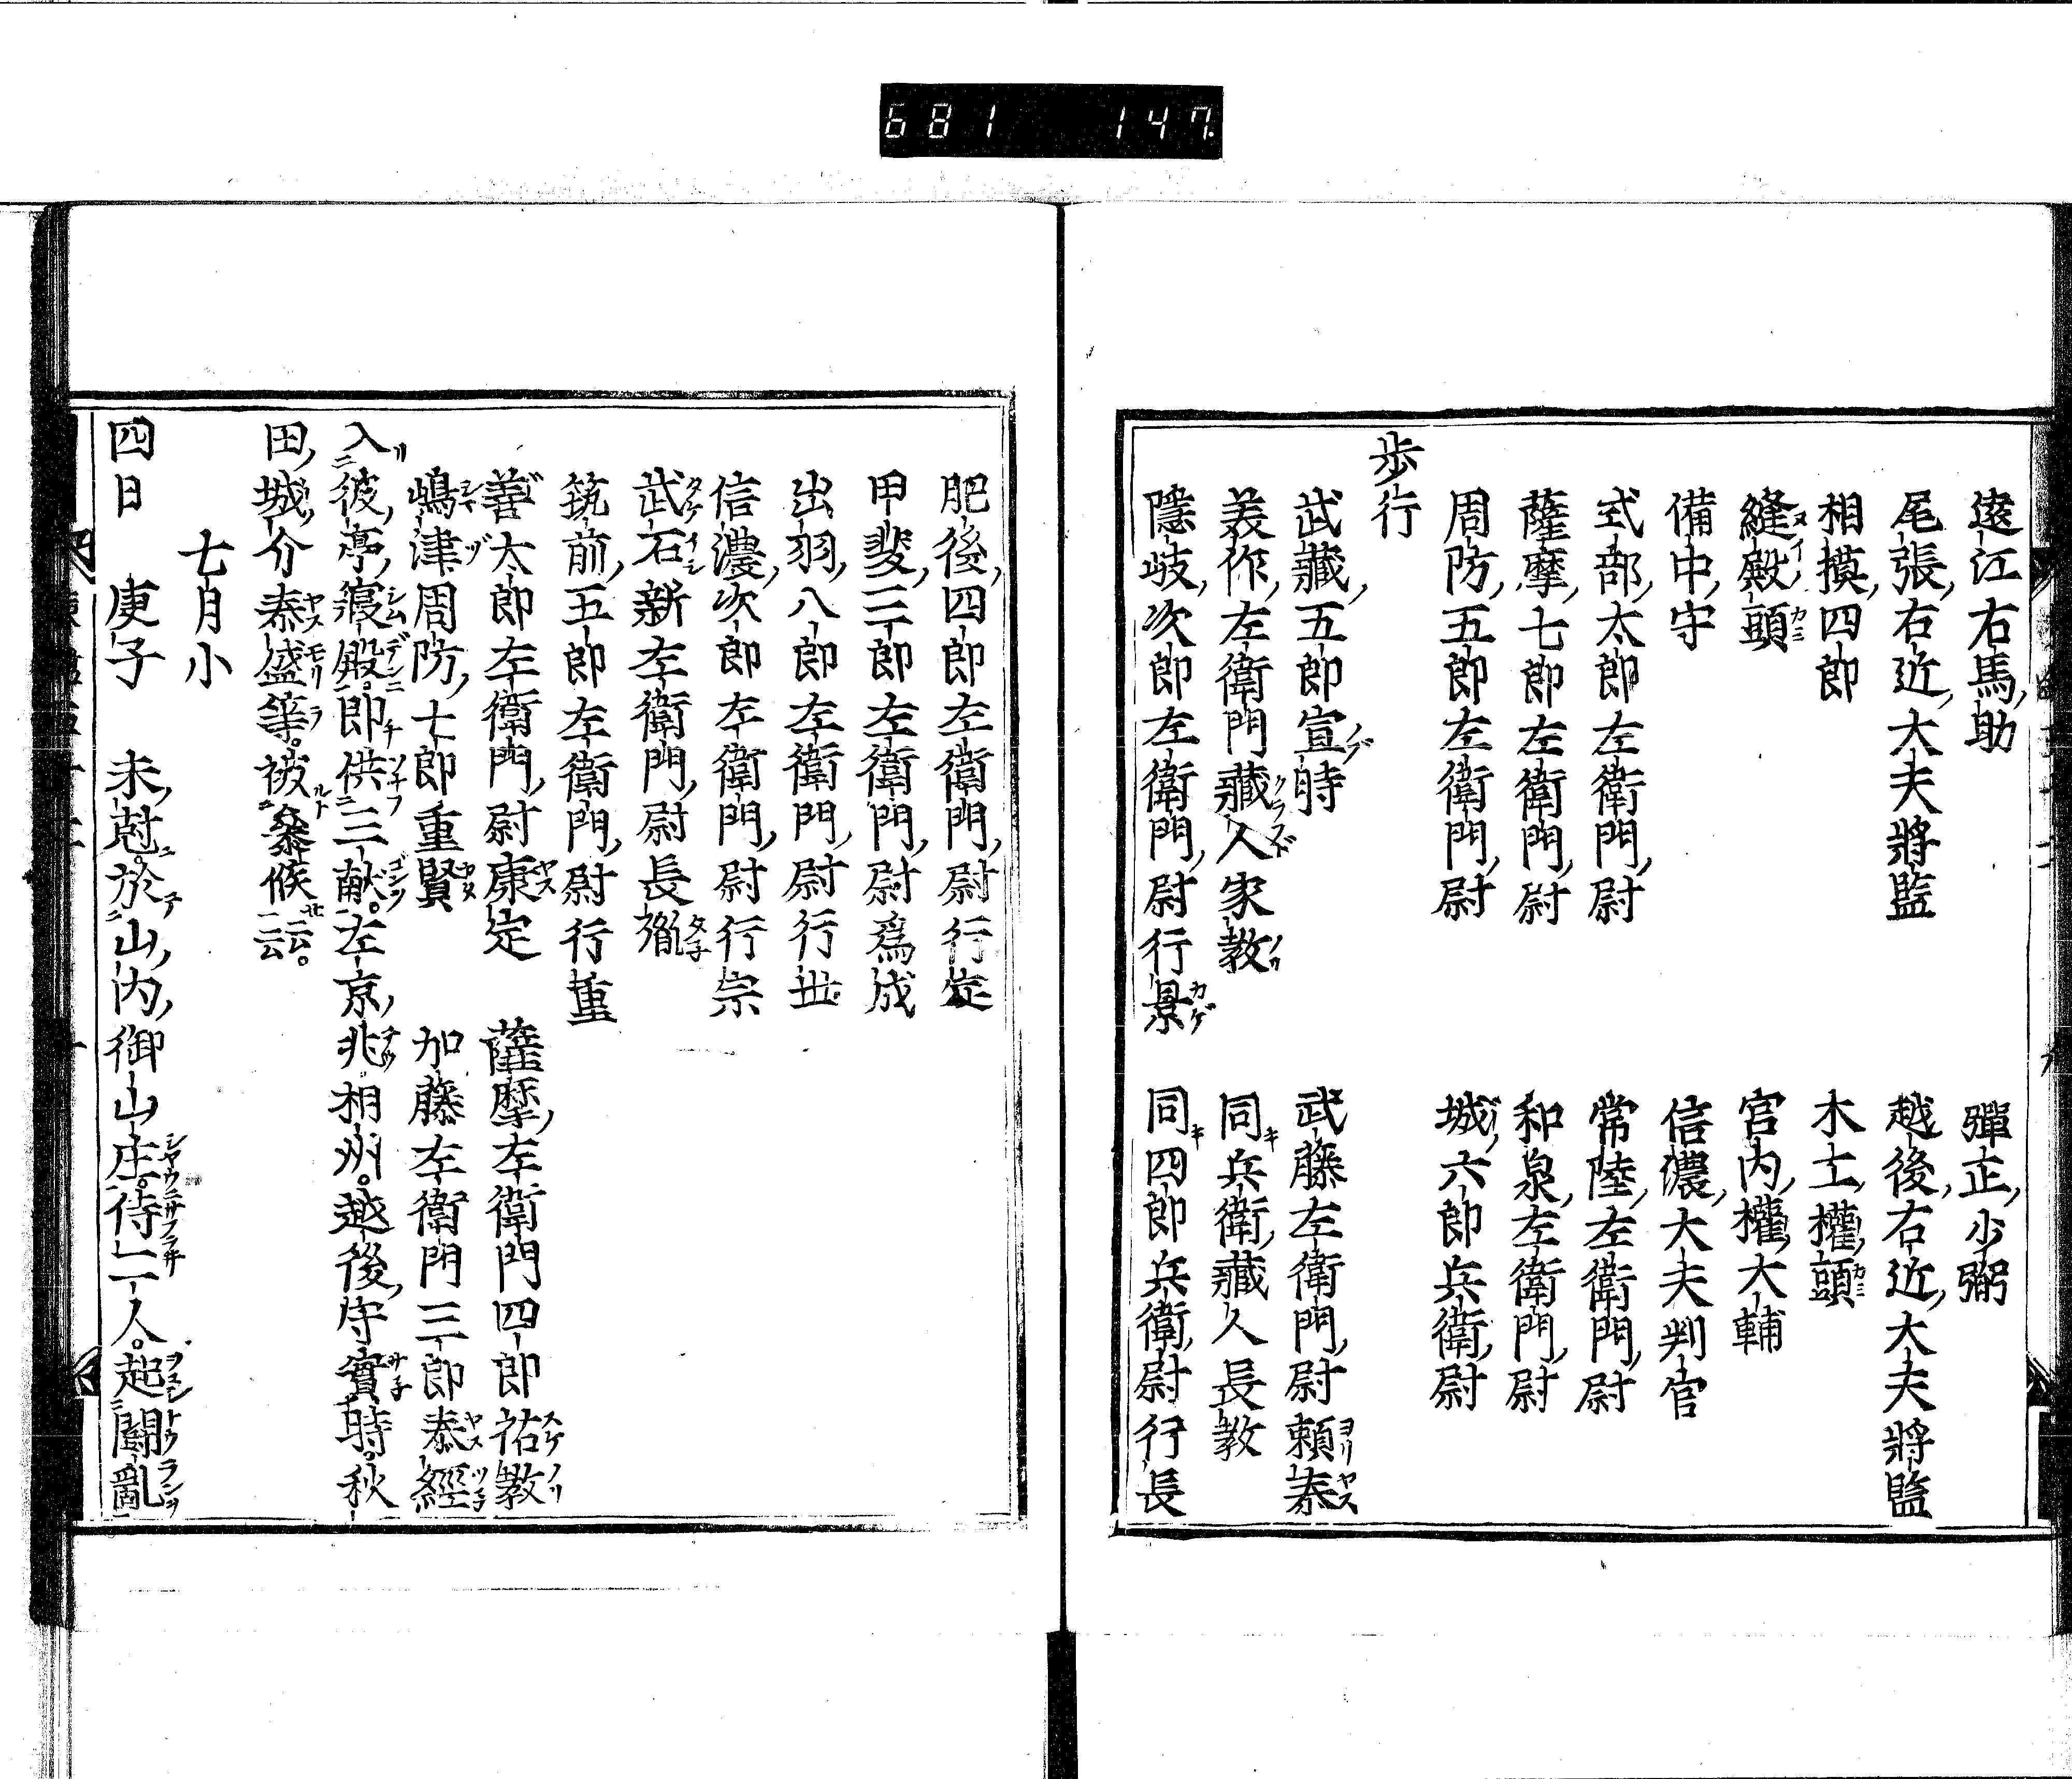 681 147
遠江右馬助 彈正少弼
尾張右近大夫將監 越後右近大夫將監
相摸四郎 木工權頭
縫殿頭 宮内權大輔
備中守 信濃大夫判官
式部太郎左衛門尉 常陸左衛門尉
薩摩七郎左衛門尉 和泉左衛門尉
周防五郎左衛門尉 城六郎兵衛尉
歩行
武藏五郎宣時 武藤左衛門尉頼泰
美作左衛門藏人家教 同兵衛藏人長教
隱岐次郎左衛門尉行景 同四郎兵衛尉行長
肥後四郎左衛門尉行定
甲斐三郎左衛門尉爲成
出羽八郎左衛門尉行世
信濃次郎左衛門尉行宗
武石新左衛門尉長胤
筑前五郎左衛門尉行重
善太郎左衛門尉康定 薩摩左衛門四郎祐教
嶋津周防七郎重賢 加藤左衛門三郎泰經
入彼亭寢殿即供三献左京兆相州越後守實時秋
田城介泰盛等被參候云云
七月小
四日 庚子 未尅於山内御山庄侍二人起鬪亂